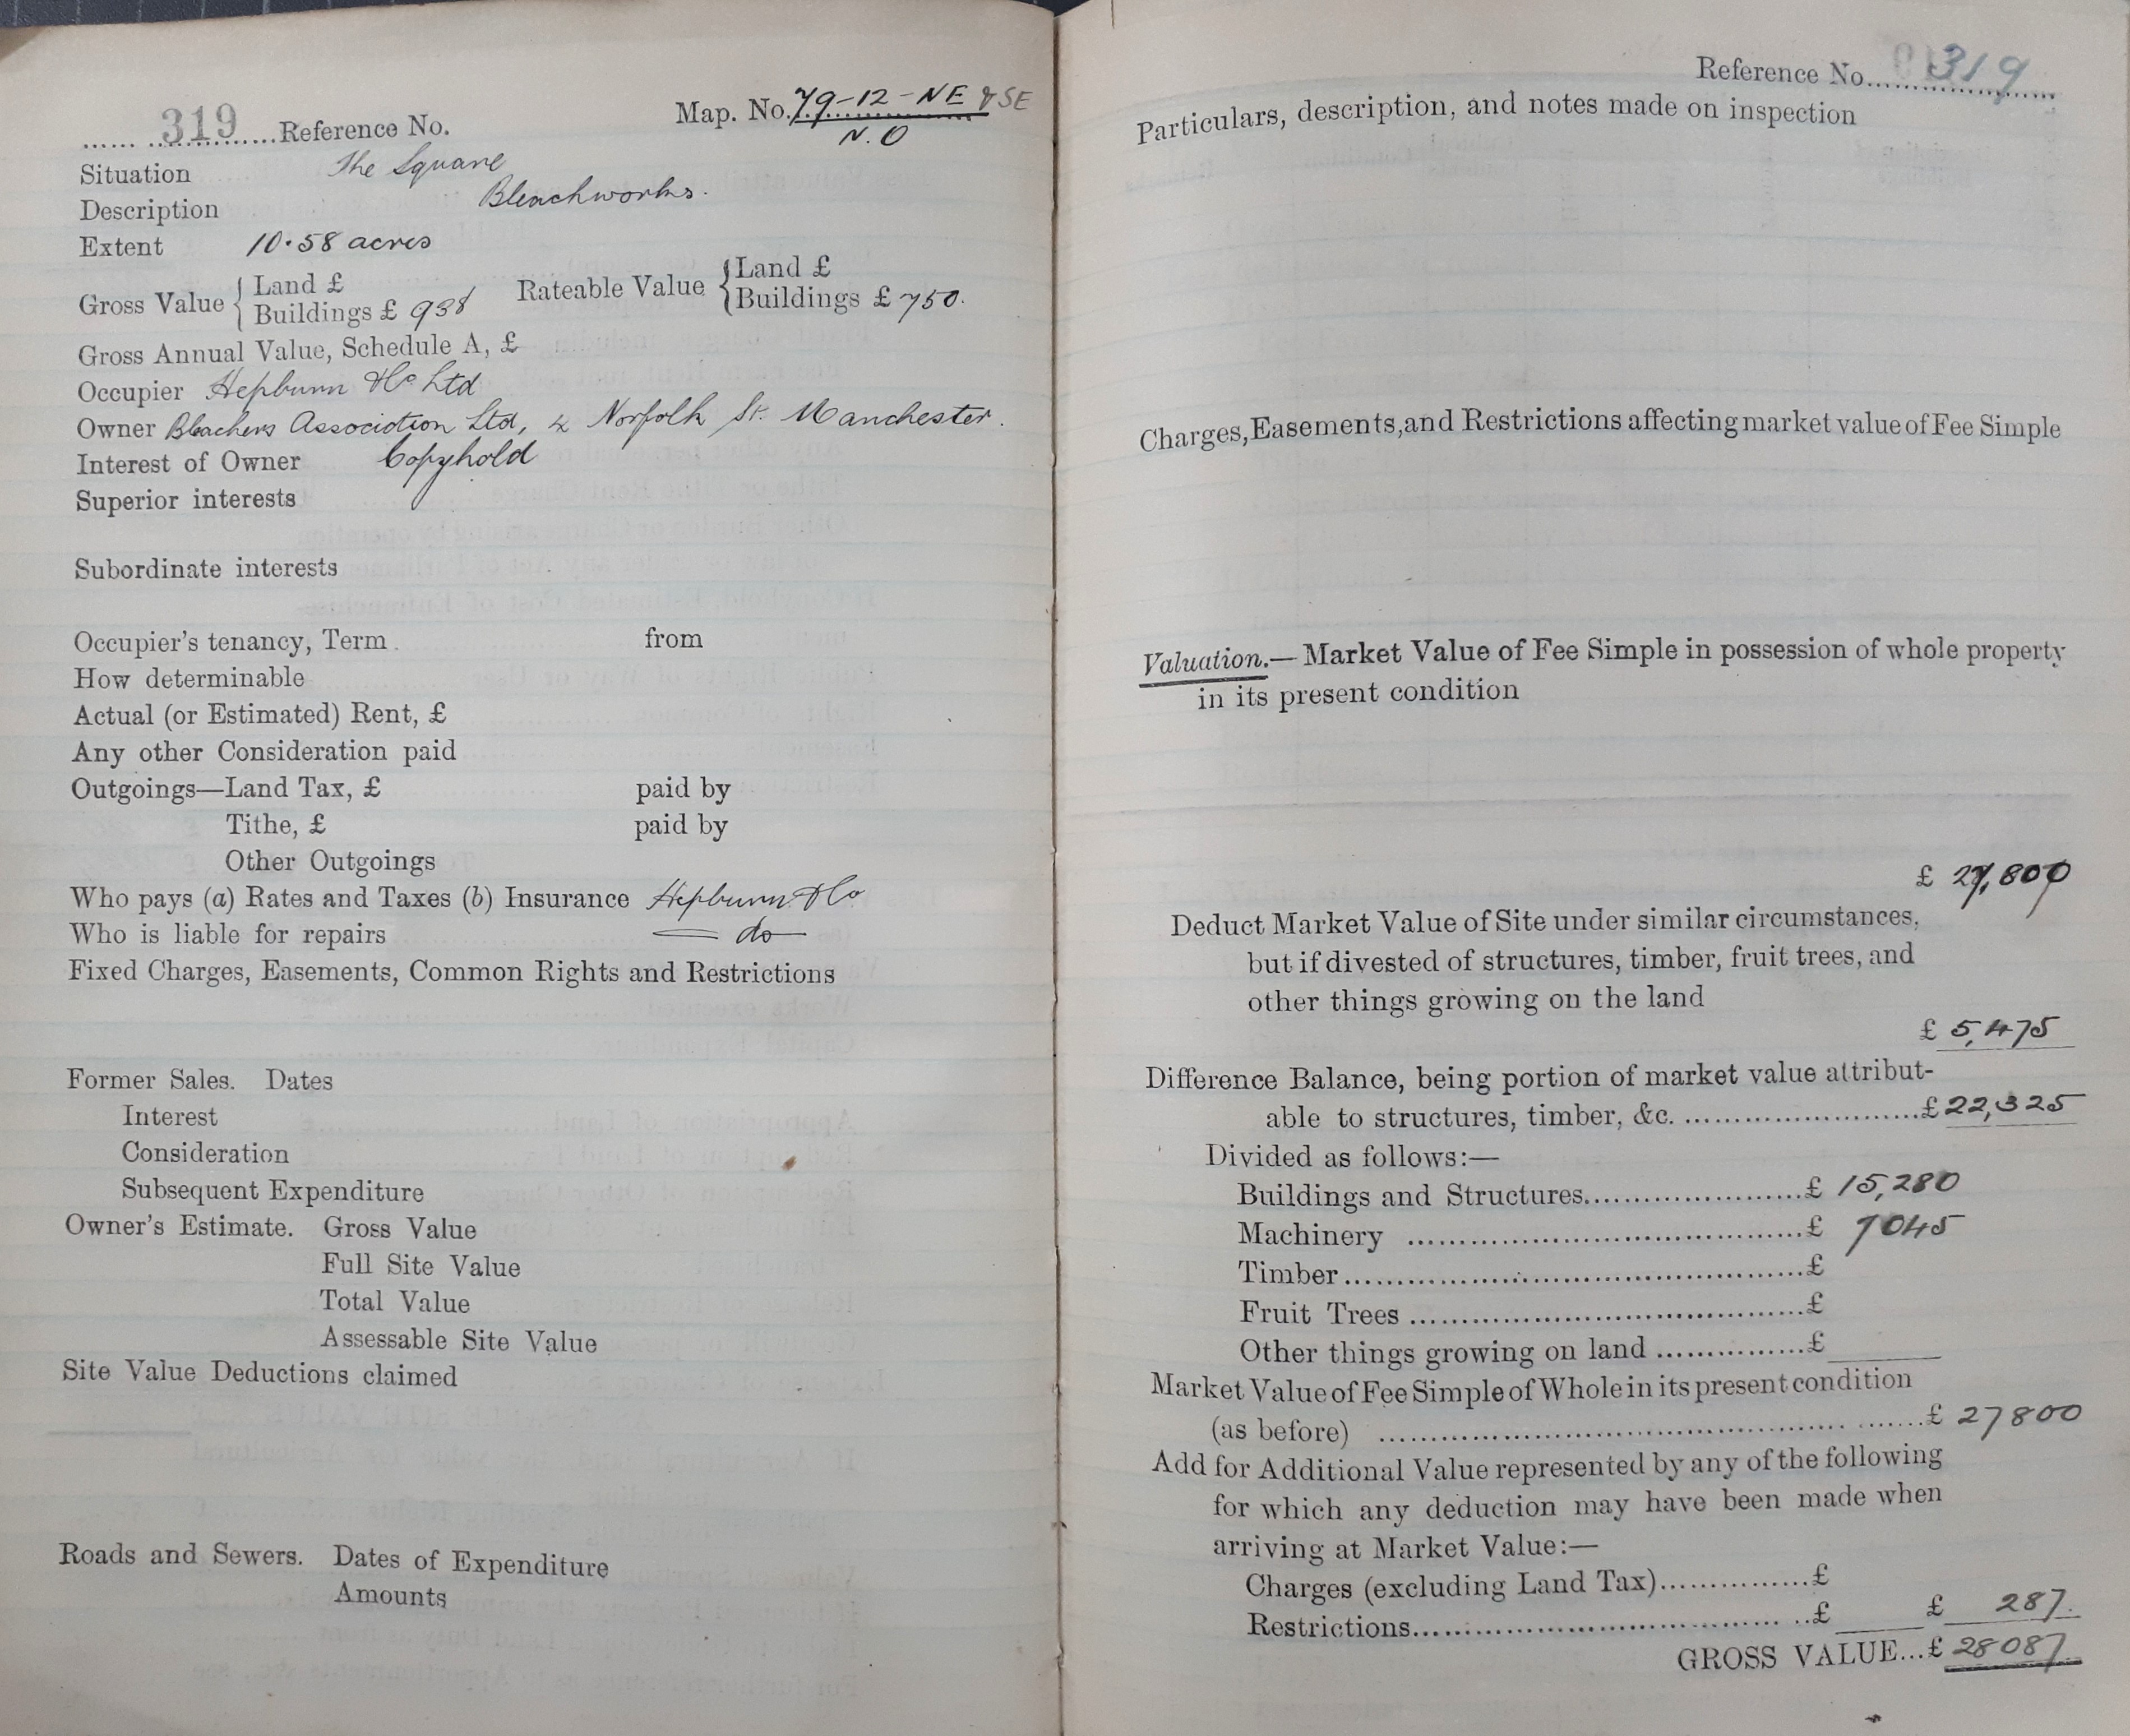 319 Reference No. Map. No. 79-12-NE & SE
N.O
Situation The Square
Description Bleachworks.
Extent 10.58 acres
Gross Value { Land £
Buildings £ 938 Rateable Value { Land £
Buildings £ 750.
Gross Annual Value, Schedule A, £
Occupier Hepburn & Co Ltd
Owner Bleachers Association Ltd, Norfolk St. Manchester.
Interest of Owner Copyhold
Superior interests
Subordinate interests
Occupier's tenancy, Term from
How determinable
Actual (or Estimated) Rent, £
Any other Consideration paid
Outgoings—Land Tax, £ paid by
Tithe, £ paid by
Other Outgoings
Who pays (a) Rates and Taxes (b) Insurance Hepburn & Co
Who is liable for repairs do
Fixed Charges, Easements, Common Rights and Restrictions
Former Sales. Dates
Interest
Consideration
Subsequent Expenditure
Owner's Estimate. Gross Value
Full Site Value
Total Value
Assessable Site Value
Site Value Deductions claimed
Roads and Sewers. Dates of Expenditure
Amounts
Reference No. 319
Particulars, description, and notes made on inspection
Charges, Easements, and Restrictions affecting market value of Fee Simple
Valuation.—Market Value of Fee Simple in possession of whole property
in its present condition
£ 27,800
Deduct Market Value of Site under similar circumstances,
but if divested of structures, timber, fruit trees, and
other things growing on the land
£ 5,475
Difference Balance, being portion of market value attribut-
able to structures, timber, &c. £ 22,325
Divided as follows:—
Buildings and Structures £ 15,280
Machinery £ 7045
Timber £
Fruit Trees £
Other things growing on land £
Market Value of Fee Simple of Whole in its present condition
(as before) £ 27800
Add for Additional Value represented by any of the following
for which any deduction may have been made when
arriving at Market Value:—
Charges (excluding Land Tax) £
Restrictions £ £ 287.
GROSS VALUE... £ 28087